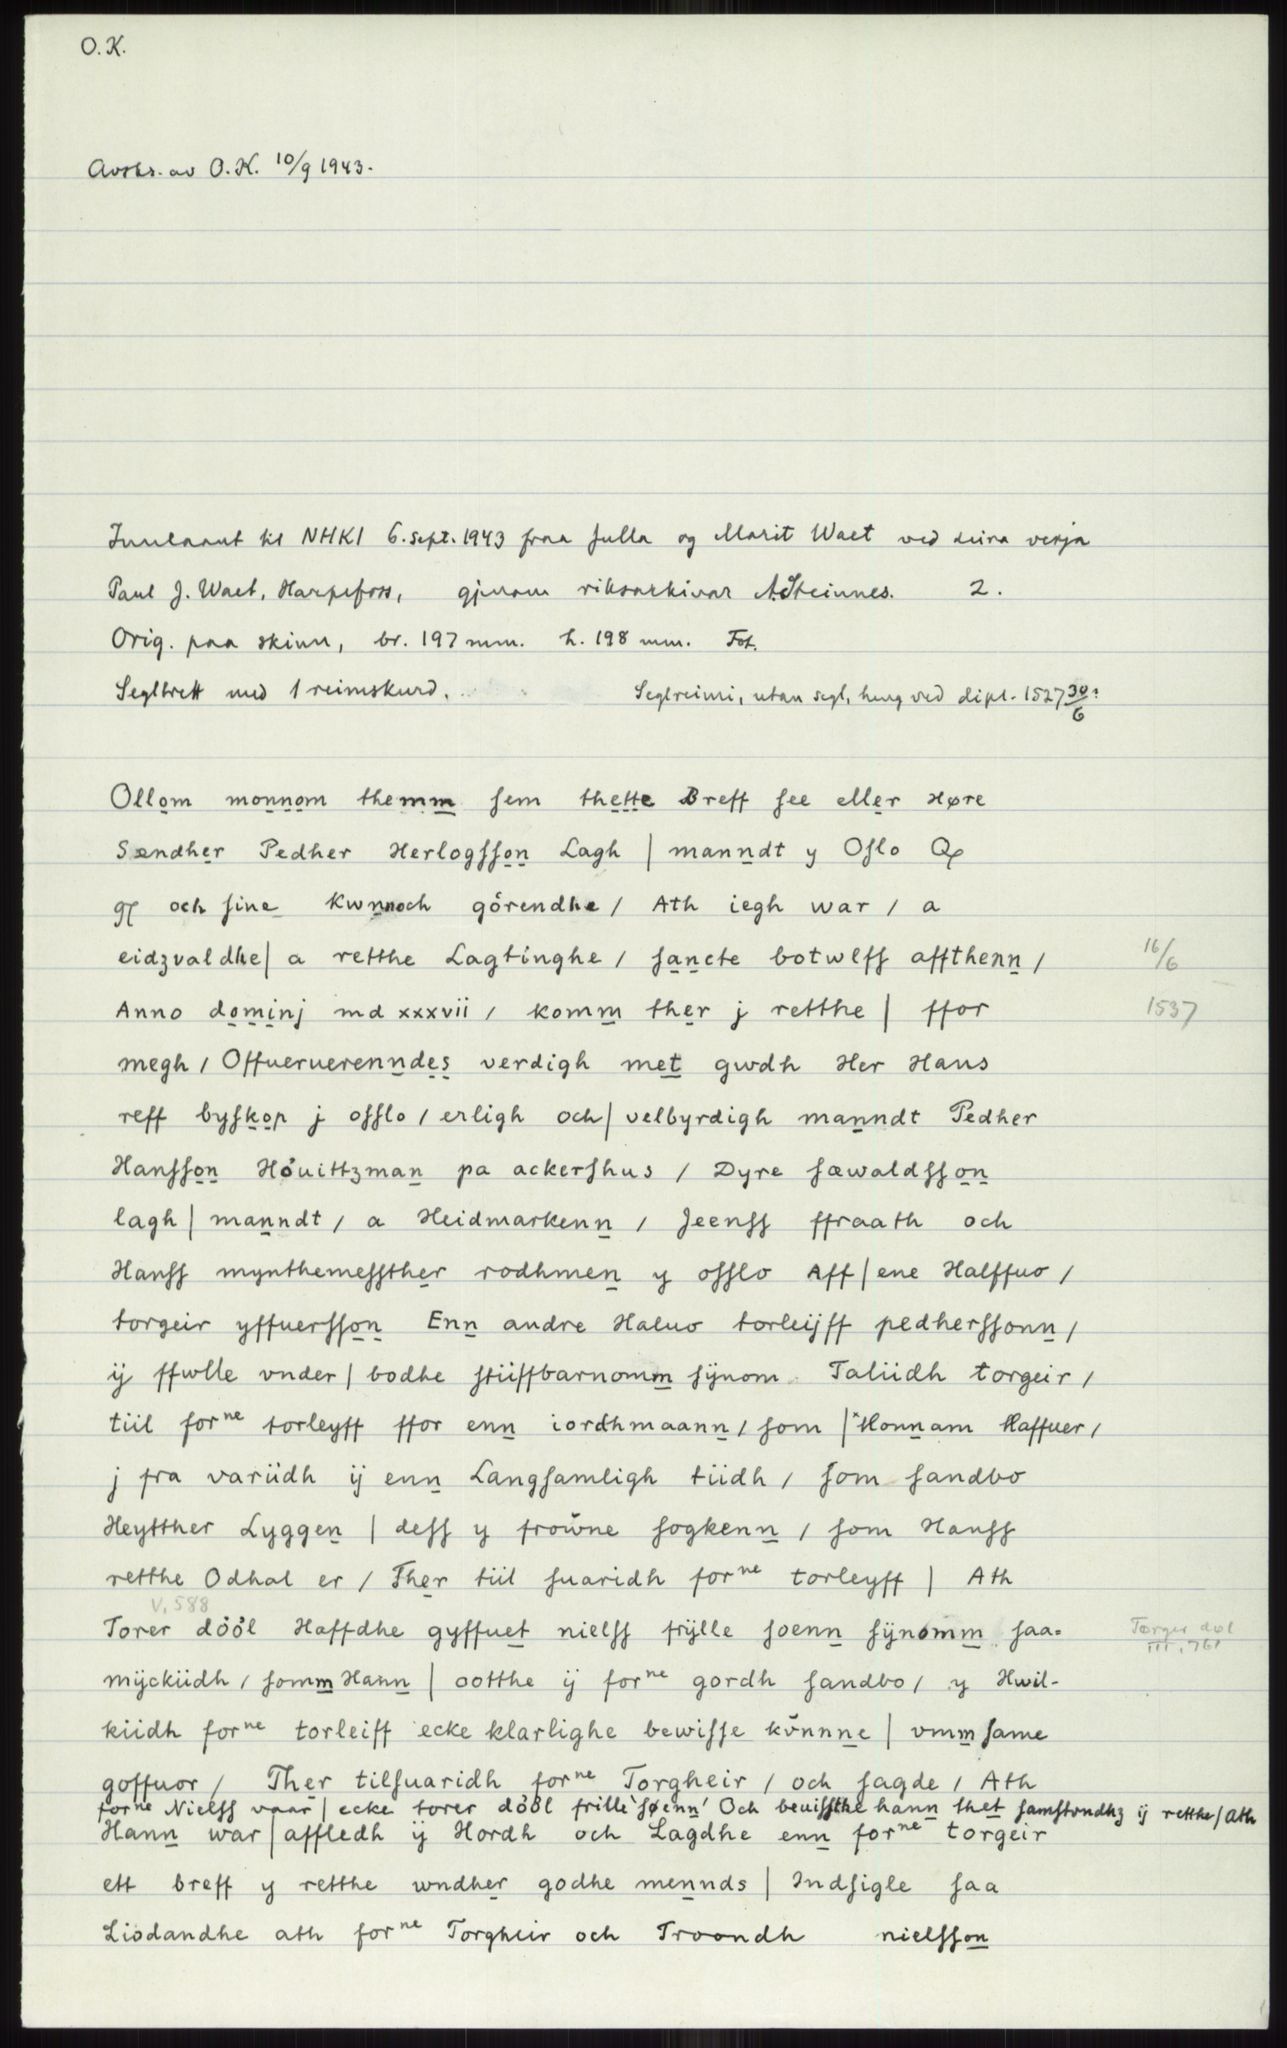 O. K.
Avskr. av O. K. 10/9 1943.
Innlaant til NHKI 6. sept. 1943 fraa Julla og Marit Waet ved deira verja
Paul J. Waet, Harpefoss, gjenom riksarkivar A. Steinnes. 2.
Orig. paa skinn, br. 197 mm. h. 198 mm. Fot.
Seglbrett med 1 reimskurd. Seglreimi, utan segl, heng ved dipl. 1527 30/6
Ollom monnom themm sem thette Breff see eller Høre
Sændher Pedher Herlogsson Lagh | manndt y Oslo Q
g och sine kwnnoch görendhe / Ath iegh war / a
eidzvaldhe | a retthe Lagtinghe / sancte botwlfs affthenn / 16/6
Anno dominj md xxxvii / komm ther j retthe | ffor 1537
megh / Offueruerenndes verdigh met gwdh Her Hans
reff byskop j osslo / erligh och | velbyrdigh manndt Pedher
Hansson Höuittzman pa ackershus / Dyre sæwaldsson
lagh | manndt / a Heidmarkenn / Jeenss ffraath och
Hanss mynthemessther rodhmen y osslo Aff | ene Halffuo /
torgeir yffuersson Enn andre Haluo torleijff pedherssonn /
ij ffwlle vnder | bodhe stiiffbarnomm sijnom Taliidh torgeir /
tiil forne torleyff ffor enn iordhmaann / som | Honnam Haffuer /
j fra variidh ij enn Langsamligh tiidh / som sandbo
Heytther Lyggen | dess y frowne sogkenn / som Hanss
retthe Odhal er / Ther tiil suaridh forne torleyff | Ath
V, 588
Torer dööl Haffdhe gyffuet nielss frijlle soenn sijnomm saa= Torger døl III, 761
mijckiidh / somm Hann | ootthe ij forne gordh sandbo / y Hwil-
kiidh forne torleiff ecke klarlighe bewisse kvnnne | vmm same
goffuor / Ther tilsuaridh forne Torgheir / och sagde / Ath
forne Nielss vaar | ecke torer dööl frille søenn Och beuissthe hann thet samstvndhz ij retthe / Ath
Hann war | affledh ij Hordh och Lagdhe enn forne torgeir
ett breff y retthe wndher godhe mennds | Indsigle saa
Liodandhe ath forne Torgheir och Troondh nielsson